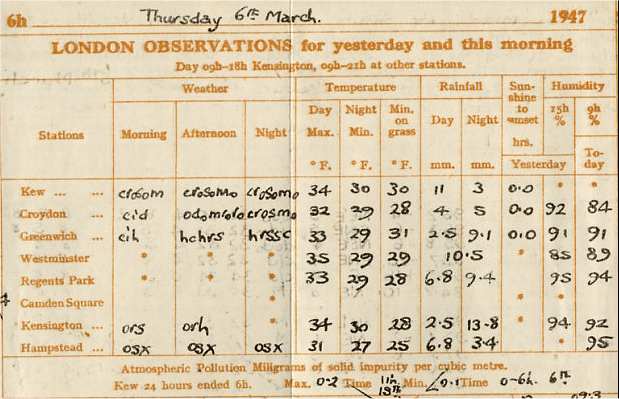 6h Thursday 6th March. 1947
LONDON OBSERVATIONS for yesterday and this morning
Day 09h-18h Kensington, 09h-21h at other stations.
Stations Weather Temperature Rainfall Sunshine to sunset Humidity
Morning Afternoon Night Day Max. Night Min. Min. on grass Day Night hrs. 15h % 9h %
°F. °F. °F. mm. mm. Yesterday To-day
Kew ... ... 34 30 30 11 3 0.0 * *
Croydon ... cid 32 29 28 4. 5 0.0 92 84
Greenwich ... cih hchrs hrssc 33 29 31 2.5 9.1 0.0 91 91
Westminster * * * 35 29 29 10.5 * 85 89
Regents Park * * * 33 29 28 6.8 9.4 * 95 94
Camden Square * * *
Kensington ... ors orh 34 30 28 2.5 13.8 * 94 92
Hampstead ... osx osx osx 31 27 25 6.8 3.4 * 95
Atmospheric Pollution Miligrams of solid impurity per cubic metre.
Kew 24 hours ended 6h. Max. 0.2 Time 11h Min. Time 0-6h. 6th